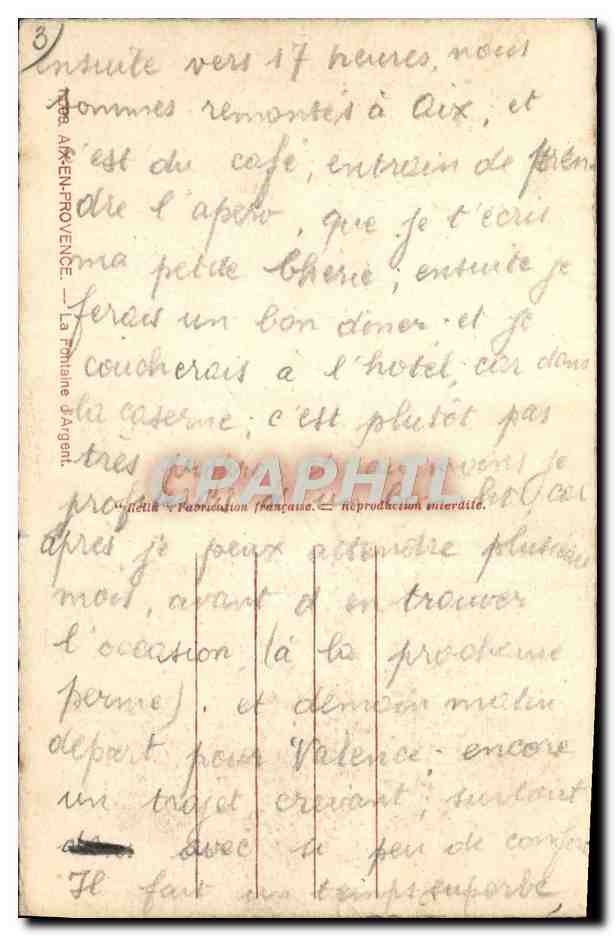 3)
ensuite vers 17 heures, nous
sommes remontés à Aix, et
c'est du café, entrain de pren-
dre l'apero, que je t'écris
ma petite Chérie, ensuite je
ferais un bon diner et je
coucherais a l'hotel, car dans
la caserne, c'est plutôt pas
très je
car
après je peux attendre plusieurs
mois, avant d'en trouver
l'occasion, (à la prochaine
perme). et demain matin
départ pour Valence, encore
un trajet, crevant, surtout
avec si peu de confort
Il fait un temps superbe,
AIX-EN-PROVENCE. — La Fontaine d'Argent.
"Bella", Fabrication française. — Reproduction interdite.
CPAPHIL